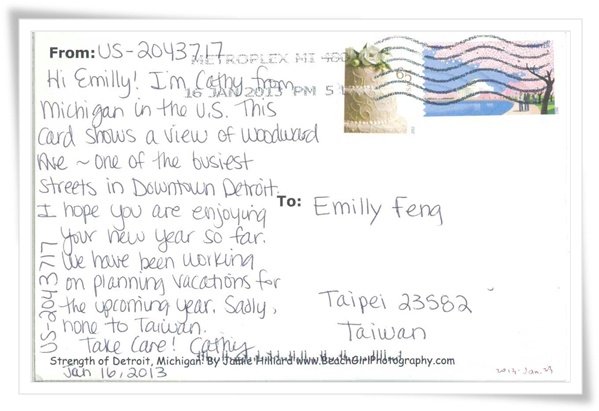 From: US-2043717
METROPLEX MI 480
16 JAN 2013 PM 5
65
Hi Emilly! I'm Cathy from
Michigan in the U.S. This
card shows a view of Woodward
Ave ~ one of the busiest
streets in Downtown Detroit.
I hope you are enjoying
your new year so far.
We have been working
on planning vacations for
the upcoming year. Sadly,
none to Taiwan.
Take Care! Cathy
US-2043717
To: Emilly Feng
Taipei 23582
Taiwan
Strength of Detroit, Michigan. By Jamie Hilliard www.BeachGirlPhotography.com
Jan 16, 2013